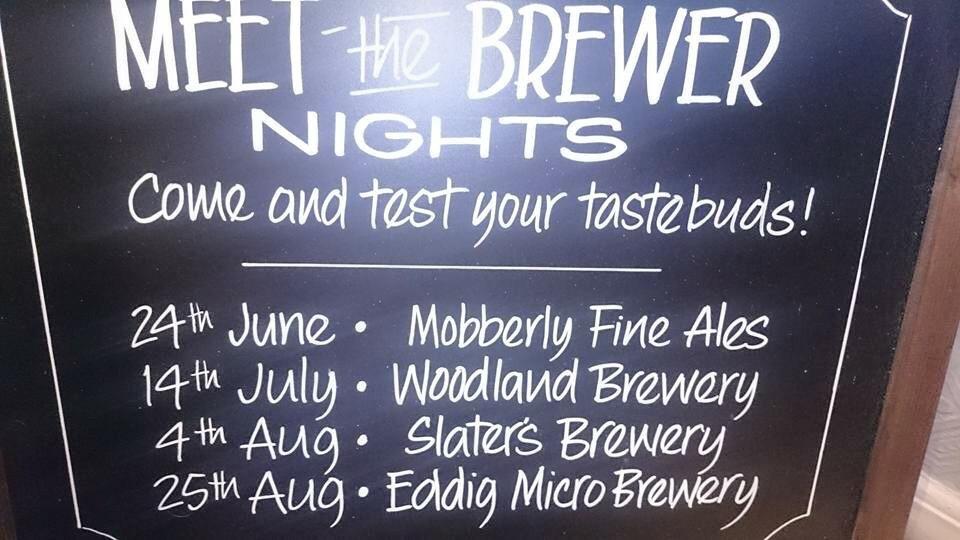 MEET the BREWER
NIGHTS
Come and test your tastebuds!
24th June • Mobberly Fine Ales
14th July • Woodland Brewery
4th Aug • Slater's Brewery
25th Aug • Eddig Micro Brewery